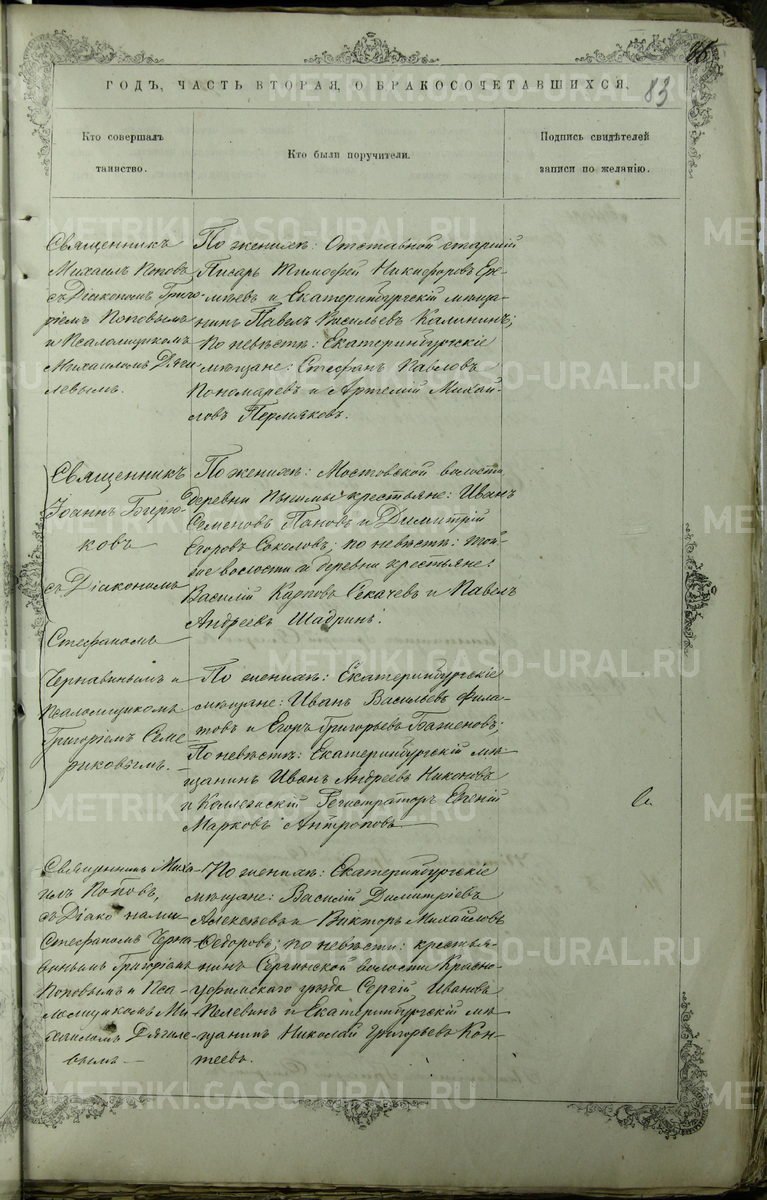 86
ГОДЪ, ЧАСТЬ ВТОРАЯ, О БРАКОСОЧЕТАВШИХСЯ,
83
Кто совершалъ
таинство.
Кто были поручители.
Подпись свидѣтелей
записи по желанію.
Священникъ
Михаилъ Поповъ
съ Діакономъ Григо
ріемъ Поповымъ
и Псаломщикомъ
Михаиломъ Дяги
левымъ.
По женихѣ: Отставной старшій
Писарь Тимофей Никифоровъ Ере-
мѣевъ и Екатеринбургскій мѣща-
нинъ Павелъ Васильевъ Калининъ;
по невѣстѣ: Екатеринбургскіе
мѣщане: Стефанъ Павловъ
Пономаревъ и Артемій Михай-
ловъ Пермяковъ.
Священникъ
Іоаннъ Бирю-
ковъ
съ Діакономъ
Стефаномъ
Чернавинымъ и
Псаломщикомъ
Григоріемъ Семе-
риковымъ.
По женихѣ: Мостовской волости
деревни Пышмы крестьяне: Иванъ
Семеновъ Пановъ и Димитрій
Егоровъ Соколовъ; по невѣстѣ: той-
же волости и деревни крестьяне:
Василій Карповъ Секачевъ и Павелъ
Андреевъ Шадринъ.
По женихѣ: Екатеринбургскіе
мѣщане: Иванъ Васильевъ Фила-
товъ и Егоръ Григорьевъ Баженовъ;
По невѣстѣ: Екатеринбургскій мѣ-
щанинъ Иванъ Андреевъ Никоновъ
и Коллежскій Регистраторъ Евгеній
Марковъ Антроповъ
Священникъ Миха-
илъ Поповъ,
съ Діаконами
Стефаномъ Черна
винымъ Григоріемъ
Поповымъ и Пса-
ломщикомъ Ми
хаиломъ Дягиле-
вымъ.
По женихѣ: Екатеринбургскіе
мѣщане: Василій Димитріевъ
Алексѣевъ и Викторъ Михайловъ
Ѳедоровъ; по невѣстѣ: крестья-
нинъ Сергинской волости Красно-
уфимскаго уѣзда Сергій Ивановъ
Пелевинъ и Екатеринбургскій мѣ-
щанинъ Николай Григорьевъ Кон-
теевъ.
METRIKI.GASO-URAL.RU